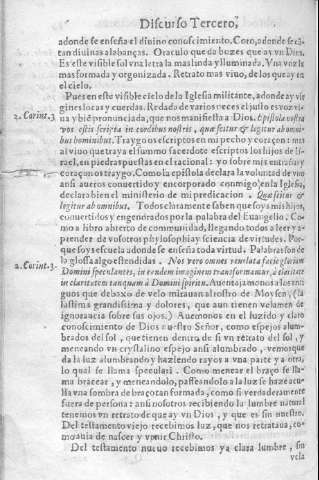 Discurso Tercero,
adonde se enseña el diuino conoscimiento. Coro, adonde se cã-
tan diuinas alabanças. Oraculo que da bozes que ay vn Dios.
Es este visible sol vna letra la mas lunda y lluminada. Vna voz la
mas formada y organizada. Retrato mas viuo, de los que ay en
el cielo.
Pues en este visible cielo de la Iglesia militante, adonde ay vir
gines locas y cuerdas. Redada de varios peces el justo es voz vi-
ua y biẽ pronunciada, que nos manifiesta a Dios. Epistola vestra
2. Corint. 3.
vos estis scripta in cordibus nostris, quæ scitur & legitur ab omni-
bus hominibus. Traygo os escriptos en mi pecho y coraçon: mas
al viuo que traya el summo sacerdote escriptos los hijos de Is-
rael, en piedras puestas en el racional: yo sobre mis entrañas y
coraçon os traygo. Como la epistola declara la voluntad de
ansi a ueros conuertidos y encorporado conmigo, en la Iglesia,
declara bien el ministerio de mi predicacion. Quæ scitur &
legitur ab omnibus. Todos claramente saben que soys mis hijos,
conuertidos y engendrados por la palabra del Euangelio. Co-
mo a libro abierto de communidad, llegando todos a leer y a-
prender de vosotros phylosophia y sciencia de virtudes. Por-
que soys escuela adonde se enseña toda virtud. Palabras son de
la glossa algo estendidas. Nos vero omnes reuelata facie gloriam
2. Corint. 3.
Domini speculantes, in eandem imaginem transformamur, à claritate
in claritatem tanquam à Domini spiritu. Auentajamonos a los anti
guos que debaxo de velo mirauan al rostro de Moysen, (la
lastima grandissima y dolores, que aun tienen velamen de
ignorancia sobre sus ojos.) Auemonos en el luzido y claro
conoscimiento de Dios nuestro Señor, como espejos alum-
brados del sol, que tienen dentro de si vn retrato del sol, y
meneando vn crystalino espejo ansi alumbrado, vemos que
da la luz alumbrando y haziendo rayos a vna parte y a otra,
lo qual se llama speculari. Como menear el braço se lla-
ma bracear, y meneandolo, passeandolo a la luz se haze acu-
lla vna sombra de braço tan formada, como si verdaderamente
fuera de persona: ansi nosotros recibiendo la lumbre natural
tenemos vn retrato de que ay vn Dios, y que es sin nuestro.
Del testamento viejo recebimos luz, que nos retrataua, co-
mo auia de nascer y venir Christo.
Del testamento nueuo recebimos ya clara lumbre, sin
vela